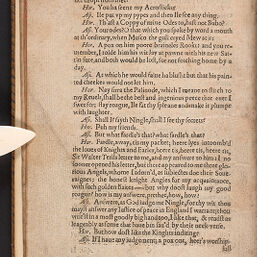 Hor. You ha seene my Acrosticks?
Asi. Ile put vp my pypes and then Ile see any thing.
Hor. Th'ast a Coppy of mine Odes to, hast not Bubo?
Asi. Your odes? O that which you spake by word a mouth
at th'ordinary, when Musco the gull cryed Mew at it:
Hor. A pox on him poore braineles Rooke: and you re-
member, I tolde him his wit lay at pawne with his new Sat-
tin sute, and both would be lost, for not fetching home by a
day.
Asi. At which he would faine ha blusht but that his pain-
ted cheekes would not let him.
Hor. Nay sirra the Palinode, which I meane to stitch to
my Reuels, shall be the best and ingenious peece that euer I
swet for; stay rogue, Ile fat thy spleane and make it plumpe
with laughter.
Asi. Shall I? fayth Ningle, shall I see thy secrets?
Hor. Puh my friends.
Asi. But what fardle's that? what fardle's that?
Hor. Fardle, away, tis my packet; heere lyes intoomb'd
the loues of Knights and Earles, heere tis, heere tis, heere tis,
Sir Walter Terils letter to me, and my answere to him: I no
sooner opened his letter, but there appeared to me three glo-
rious Angels, whome I ador'd, as subiectes doe their Soue-
raignes: the honest knight Angles for my acquaintance,
with such golden baites but why doost laugh my good
rogue? how is my answere, prethee, how, how?
Asi. Answere, as God iudge me Ningle, for thy wit thou
mayst answer any Iustice of peace in England I warrant; thou
writ'st in a most goodly big hand too, I like that, & readst as
leageably as some that haue bin sau'd by their neck-verse.
Hor. But how dost like the Knights inditing?
Asi. If I haue any iudgement; a pox ont, heer's worship-
full